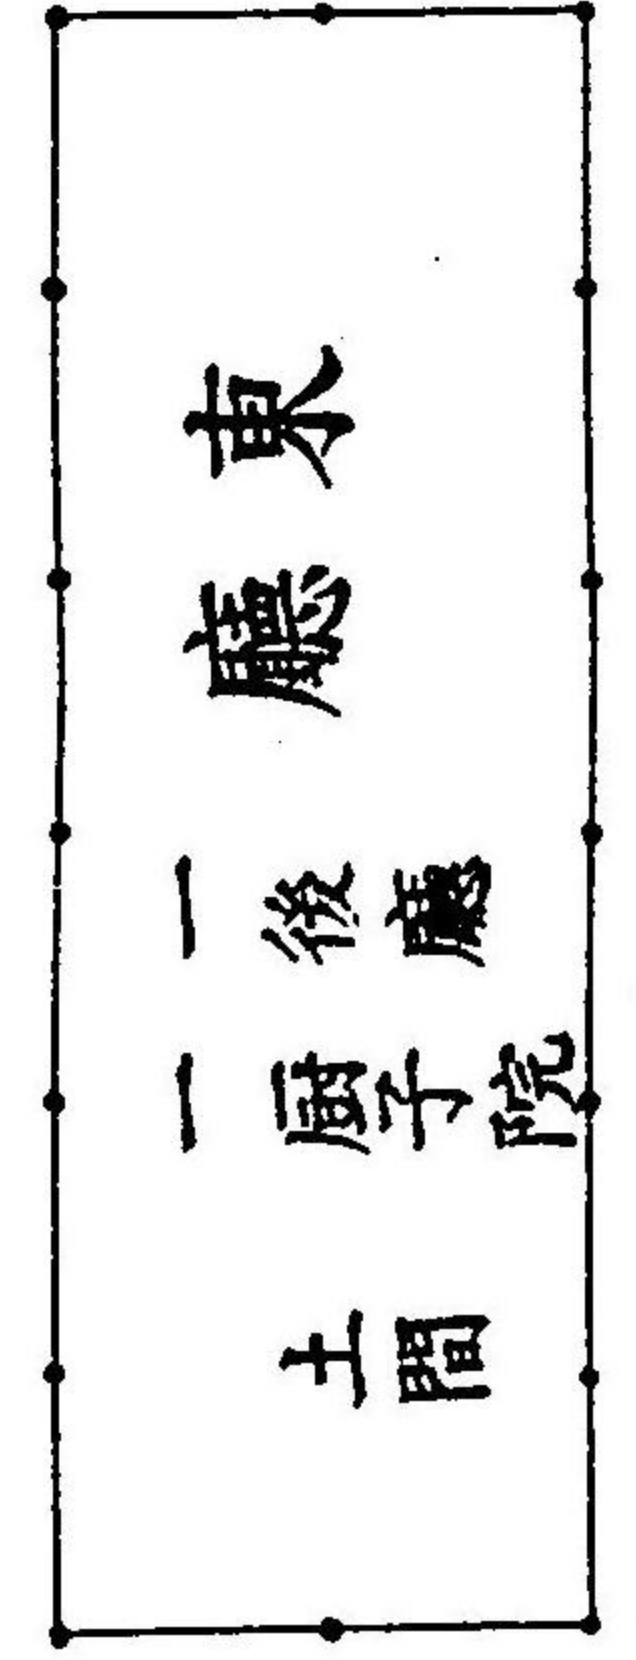 東廳
一後廳
一厨子院
土間